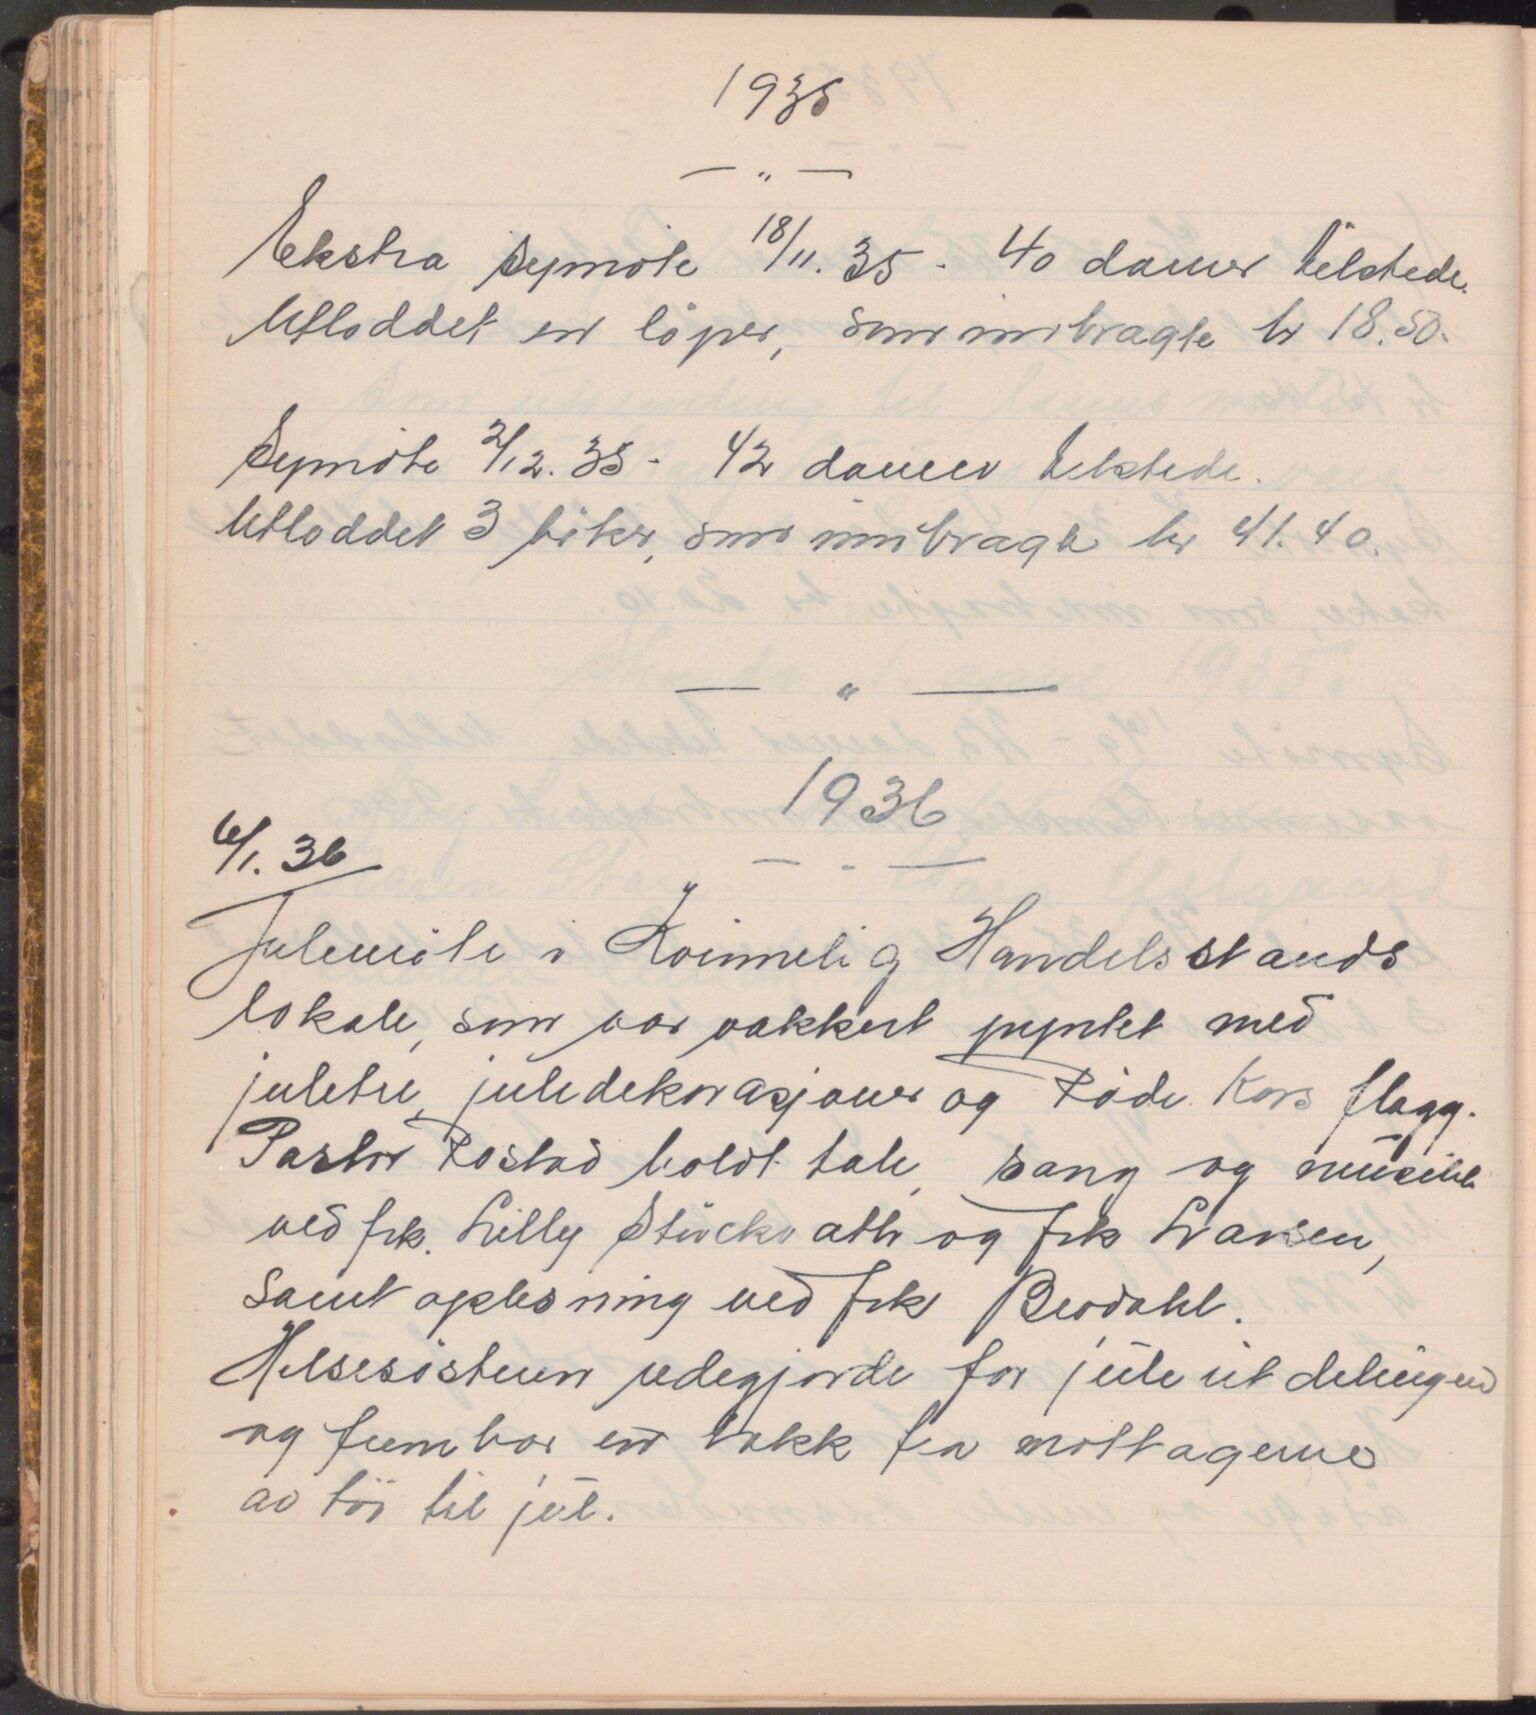 1935
— " —
Ekstra symøte 18/11. 35 - 40 damer tilstede.
Utloddet en løper, som innbragte kr 18.50.
Symøte 2/12. 35 - 42 damer tilstede.
Utloddet 3 bøker, som innbragte kr 41.40.
— " —
1936
— " —
6/1. 36
Julemøte i Kvinnelig Handelsstands
lokale, som var vakkert pyntet med
juletre, juledekorasjoner og Røde Kors flagg.
Pastor Rostad holdt tale, sang og musikk
ved frk. Lilly og frk Larsen,
samt oplesning ved frk Berdahl.
Helsesøsteren redegjorde for juleutdelingen
og frembar en takk fra mottagerne
av tøi til jul.